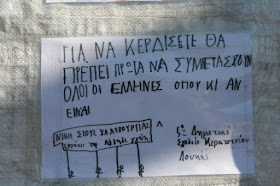 ΓΙΑ ΝΑ ΚΕΡΔΙΣΕΤΕ ΘΑ
ΠΡΕΠΕΙ ΠΡΩΤΑ ΝΑ ΣΥΜΕΤΑΣΧΟΥΝ
ΟΛΟΙ ΟΙ ΕΛΛΗΝΕΣ ΟΠΟΥ ΚΙ ΑΝ
ΕΙΝΑΙ
ΝΙΚΗ ΣΤΟΥΣ ΧΑΛΥΒΟΥΡΓΟΥΣ
5ο Δημοτικό
Σχολείο Κερατσινίου
Λουκάς